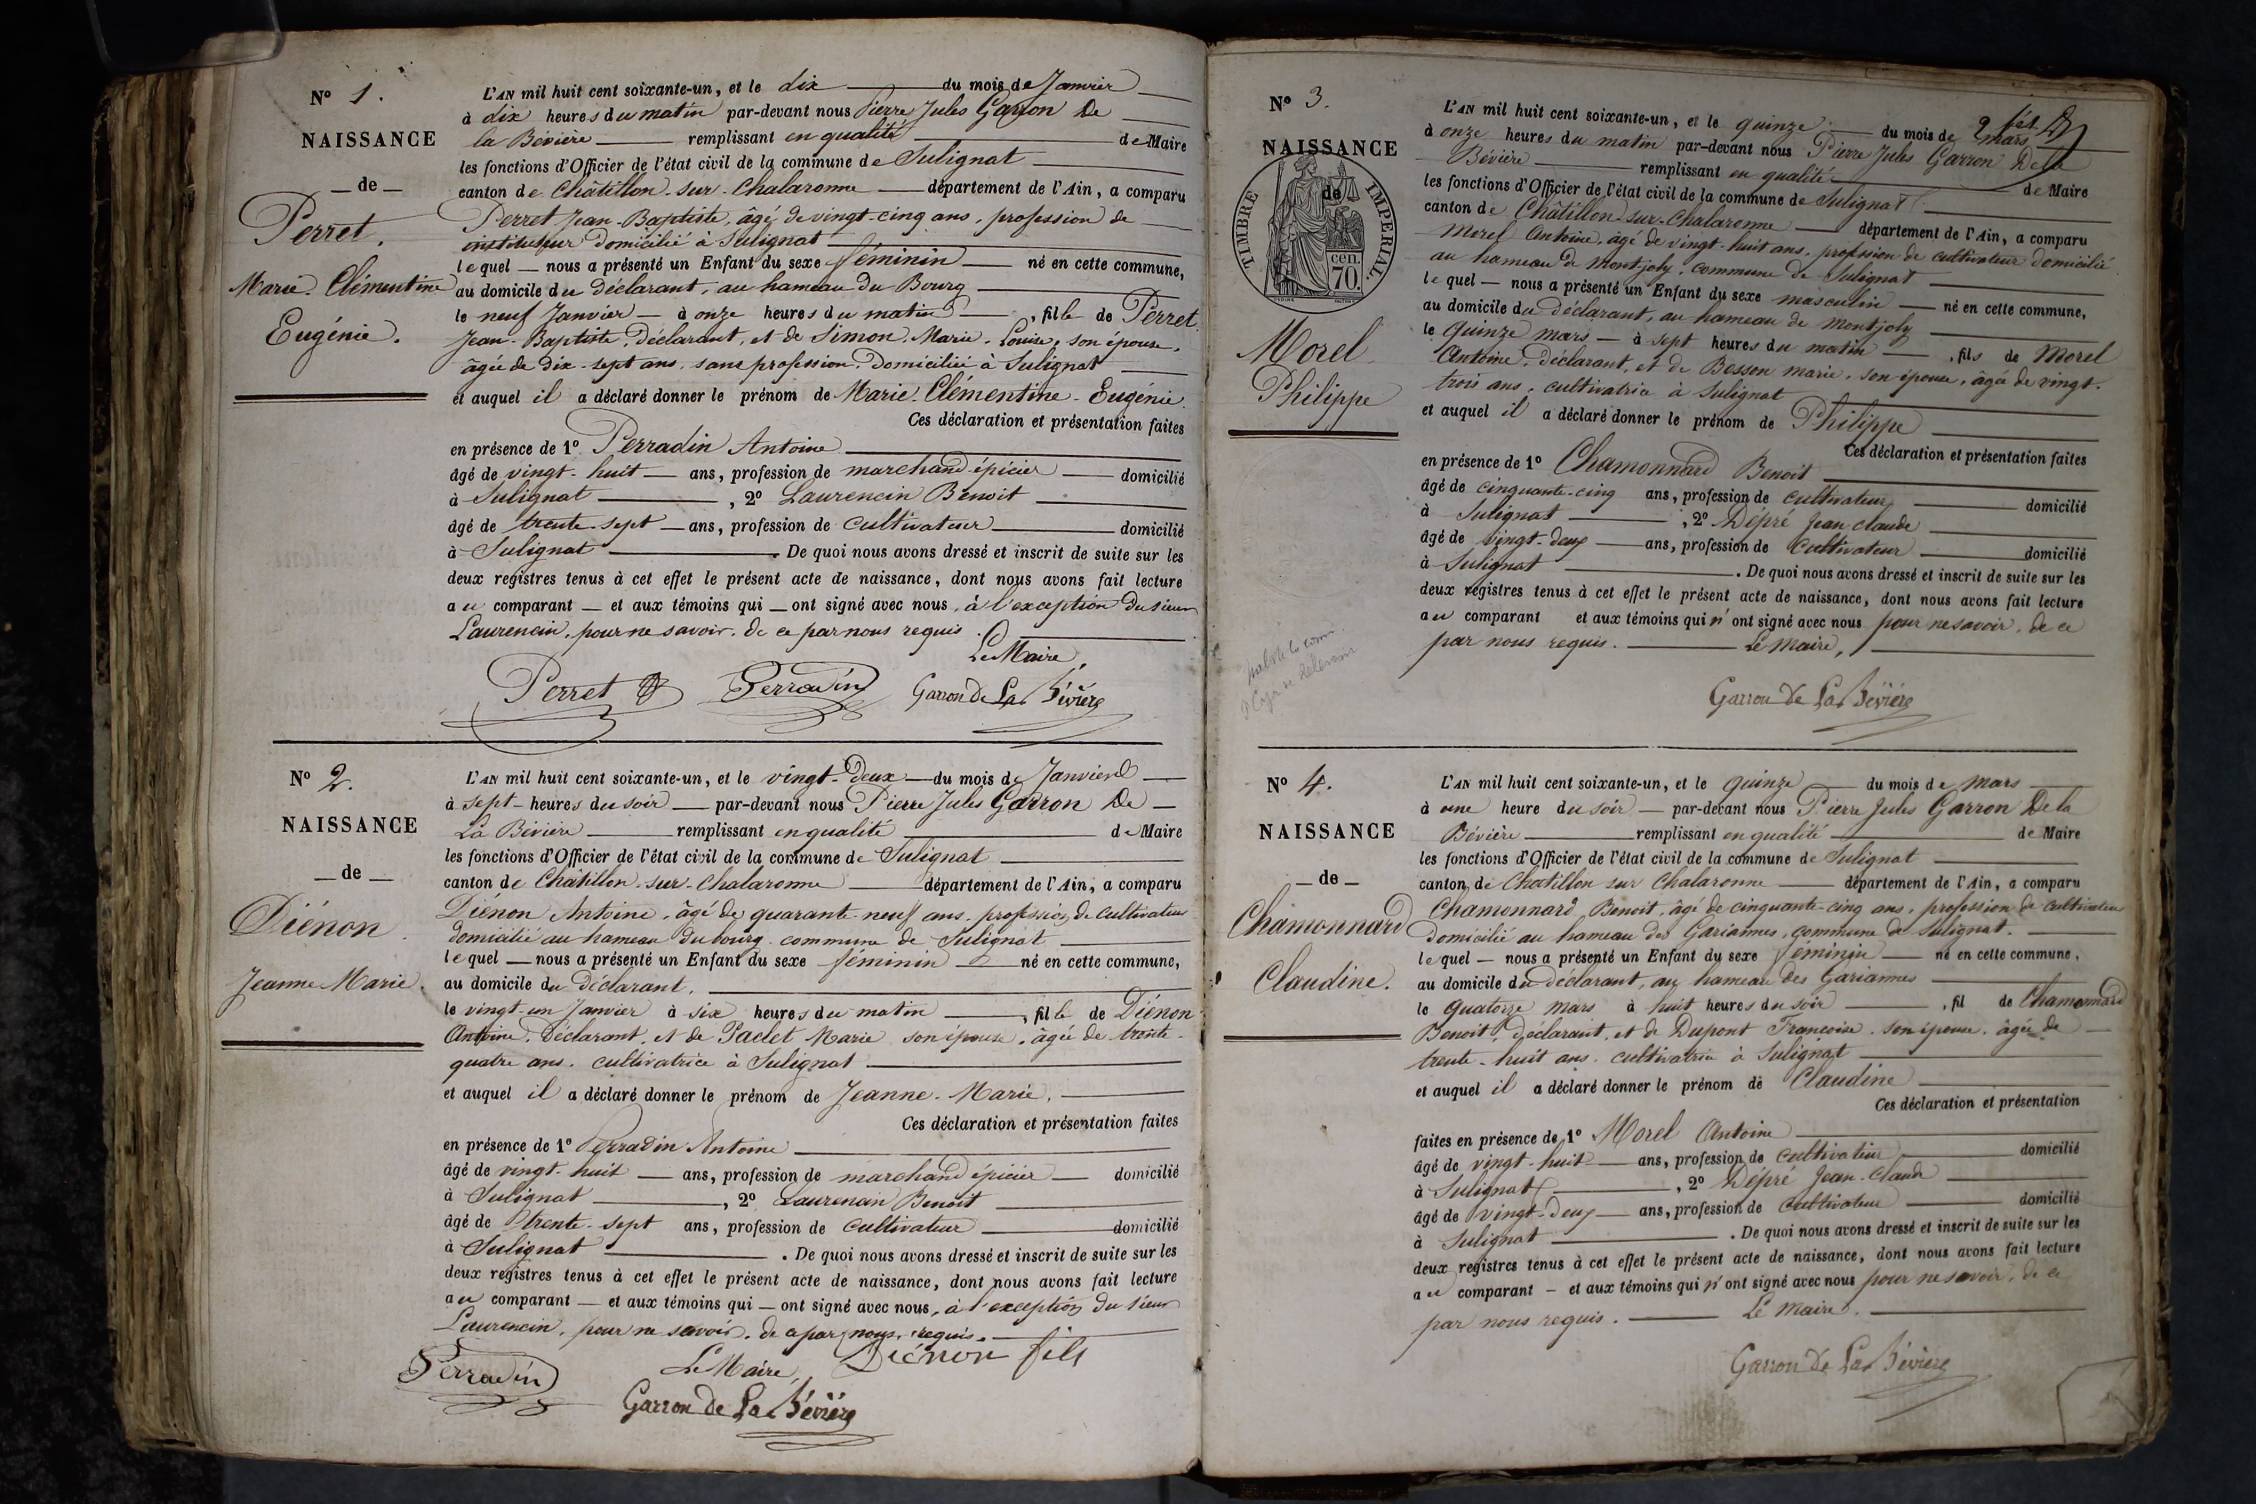 N° 1.
NAISSANCE
de
Perret.
Marie. Clémentine
Eugénie.
L'AN mil huit cent soixante-un, et le dix du mois de Janvier
à dix heures du matin par-devant nous Pierre Jules Garron De
la Bévière remplissant en qualité de Maire
les fonctions d'Officier de l'état civil de la commune de Sulignat
canton de Châtillon-sur-Chalaronne département de l'Ain, a comparu
Perret Jean-Baptiste, âgé de vingt-cinq ans, profession de
instituteur domicilié à Sulignat
lequel nous a présenté un Enfant du sexe féminin né en cette commune,
au domicile du déclarant, au hameau du Bourg
le neuf Janvier à onze heures du matin, fille de Perret
Jean-Baptiste, Déclarant, et de Simon Marie-Louise, son épouse,
âgée de dix-sept ans, sans profession, Domiciliée à Sulignat
et auquel il a déclaré donner le prénom de Marie. Clémentine-Eugénie.
Ces déclaration et présentation faites
en présence de 1° Perradin Antoine
âgé de vingt-huit ans, profession de marchand épicier domicilié
à Sulignat, 2° Laurencin Benoit
âgé de trente-sept ans, profession de cultivateur domicilié
à Sulignat. De quoi nous avons dressé et inscrit de suite sur les
deux registres tenus à cet effet le présent acte de naissance, dont nous avons fait lecture
au comparant et aux témoins qui ont signé avec nous, à l'exception du sieur
Laurencin, pour ne savoir, de ce par nous requis.
Le Maire,
Perret Perradin Garron de La Bévière
N° 2.
NAISSANCE
de
Diénon
Jeanne Marie.
L'AN mil huit cent soixante-un, et le vingt-deux du mois de Janvier
à sept heures du soir par-devant nous Pierre Jules Garron De
La Bévière remplissant en qualité de Maire
les fonctions d'Officier de l'état civil de la commune de Sulignat
canton de Châtillon-sur-Chalaronne département de l'Ain, a comparu
Diénon Antoine, âgé de quarante-neuf ans, profession de cultivateur
domicilié au hameau du bourg commune de Sulignat
lequel nous a présenté un Enfant du sexe féminin né en cette commune,
au domicile du Déclarant,
le vingt-un Janvier à six heures du matin, fille de Diénon
Antoine, Déclarant, et de Paclet Marie son épouse, âgée de trente-
quatre ans, cultivatrice à Sulignat
et auquel il a déclaré donner le prénom de Jeanne-Marie.
Ces déclaration et présentation faites
en présence de 1° Perradin Antoine
âgé de vingt-huit ans, profession de marchand épicier domicilié
à Sulignat, 2° Laurencin Benoit
âgé de trente-sept ans, profession de cultivateur domicilié
à Sulignat. De quoi nous avons dressé et inscrit de suite sur les
deux registres tenus à cet effet le présent acte de naissance, dont nous avons fait lecture
au comparant et aux témoins qui ont signé avec nous, à l'exception du sieur
Laurencin, pour ne savoir, de ce par nous requis.
Perradin Le Maire, Diénon fils
Garron de La Bévière
N° 3.
NAISSANCE
de
TIMBRE IMPERIAL.
70. cen.
Morel
Philippe
L'AN mil huit cent soixante-un, et le quinze du mois de mars
à onze heures du matin par-devant nous Pierre Jules Garron De la
Bévière remplissant en qualité de Maire
les fonctions d'Officier de l'état civil de la commune de Sulignat
canton de Châtillon-sur-Chalaronne département de l'Ain, a comparu
Morel Antoine, âgé de vingt-huit ans, profession de cultivateur domicilié
au hameau de Montjoly, commune de Sulignat
lequel nous a présenté un Enfant du sexe masculin né en cette commune,
au domicile du déclarant, au hameau de Montjoly
le quinze mars à sept heures du matin, fils de Morel
Antoine, Déclarant, et de Besson marie, son épouse, âgée de vingt-
trois ans, cultivatrice à Sulignat
et auquel il a déclaré donner le prénom de Philippe
Ces déclaration et présentation faites
en présence de 1° Chamonnard Benoit
âgé de cinquante-cinq ans, profession de cultivateur domicilié
à Sulignat, 2° Dépré Jean Claude
âgé de vingt-deux ans, profession de cultivateur domicilié
à Sulignat. De quoi nous avons dressé et inscrit de suite sur les
deux registres tenus à cet effet le présent acte de naissance, dont nous avons fait lecture
au comparant et aux témoins qui n'ont signé avec nous pour ne savoir, de ce
par nous requis. Le Maire,
Garron de La Bévière
N° 4.
NAISSANCE
de
Chamonnard
Claudine.
L'AN mil huit cent soixante-un, et le quinze du mois de mars
à une heure du soir par-devant nous Pierre Jules Garron De la
Bévière remplissant en qualité de Maire
les fonctions d'Officier de l'état civil de la commune de Sulignat
canton de Chatillon sur Chalaronne département de l'Ain, a comparu
Chamonnard Benoit, âgé de cinquante-cinq ans, profession de cultivateur
domicilié au hameau des Gariannes, commune de Sulignat.
lequel nous a présenté un Enfant du sexe féminin né en cette commune,
au domicile du déclarant, au hameau des Gariannes
le quatorze mars à huit heures du soir, fil de Chamonnard
Benoit, déclarant, et de Dupont Françoise, son épouse, âgée de
trente-huit ans, cultivatrice à Sulignat
et auquel il a déclaré donner le prénom de Claudine
Ces déclaration et présentation
faites en présence de 1° Morel Antoine
âgé de vingt-huit ans, profession de cultivateur domicilié
à Sulignat, 2° Dépré Jean-Claude
âgé de vingt-deux ans, profession de cultivateur domicilié
à Sulignat. De quoi nous avons dressé et inscrit de suite sur les
deux registres tenus à cet effet le présent acte de naissance, dont nous avons fait lecture
au comparant et aux témoins qui n'ont signé avec nous pour ne savoir, de ce
par nous requis. Le Maire.
Garron de La Bévière